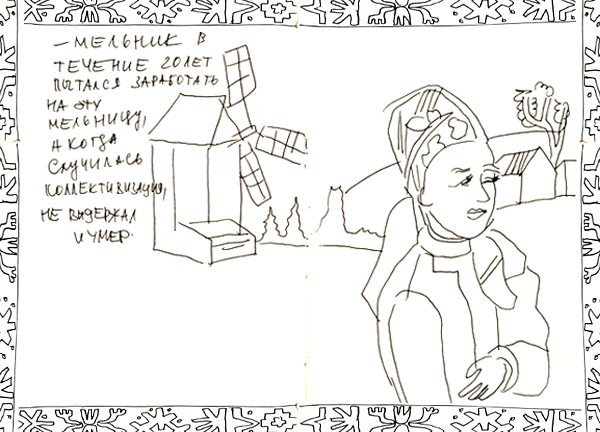 – МЕЛЬНИК В
ТЕЧЕНИЕ 20 ЛЕТ
ПЫТАЛСЯ ЗАРАБОТАТЬ
НА ЭТУ
МЕЛЬНИЦУ,
А КОГДА
СЛУЧИЛАСЬ
КОЛЛЕКТИВИЗАЦИЯ,
НЕ ВЫДЕРЖАЛ
И УМЕР.